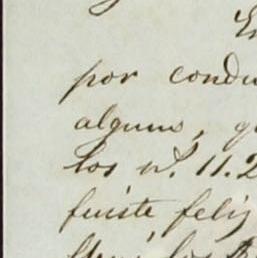 por condu
alguno, q
los nº. 11.2
fuiste feliz